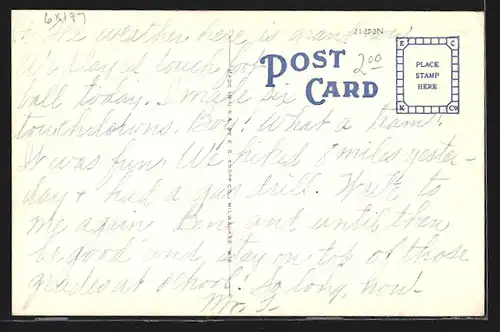 6X197
The weather here is grand now
We played touch foot
ball today. I made six
touchdowns. Boy! What a team!
It was fun. We hiked 8 miles yester-
day & had a gas trill. Write to
me again and until then
be good and stay on top of those
grades at school. So long, now
Mr. T.
21272N
POST
CARD
2.00
E C
PLACE
STAMP
HERE
K Co
MADE IN U.S.A. BY E. C. KROPP CO., MILWAUKEE, WIS.